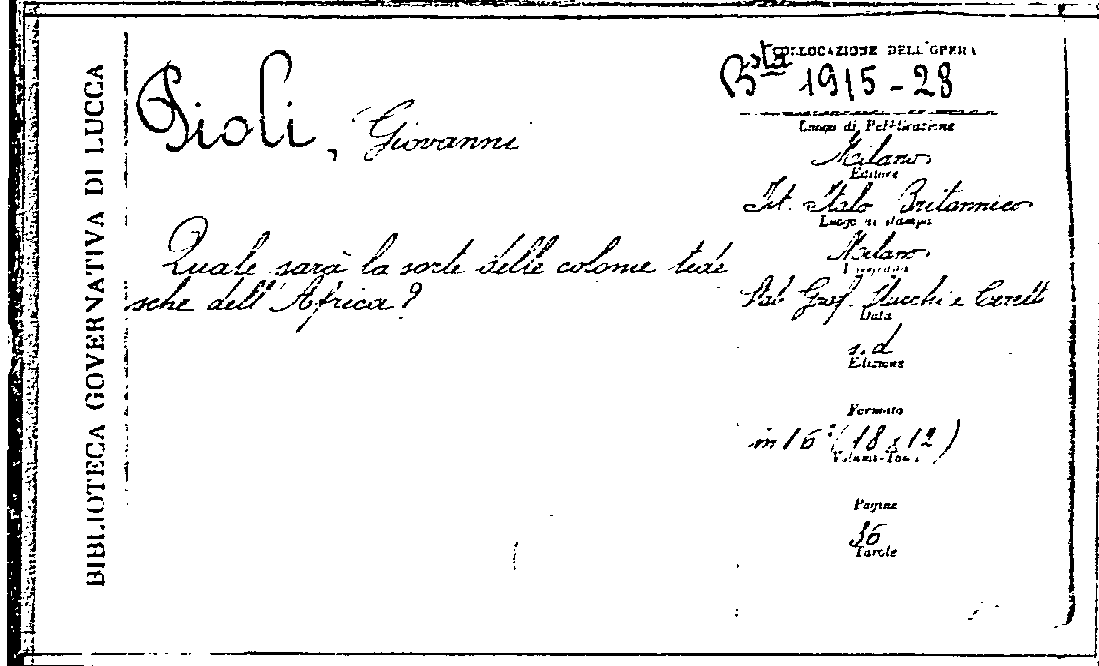 BIBLIOTECA GOVERNATIVA DI LUCCA
Pioli, Giovanni
Quale sarà la sorte delle colonie tede
sche dell'Africa?
COLLOCAZIONE DELL'OPERA
Bsta 1915-28
Luogo di Pubblicazione
Milano
Editore
Ist. Italo Britannico
Luogo di stampa
Milano
Stab. Graf. Stucchi e Ceretti
Data
s.d
Edizione
Formato
in 16° (18 x 12)
Volumi-Tomi
Pagine
36
Tavole